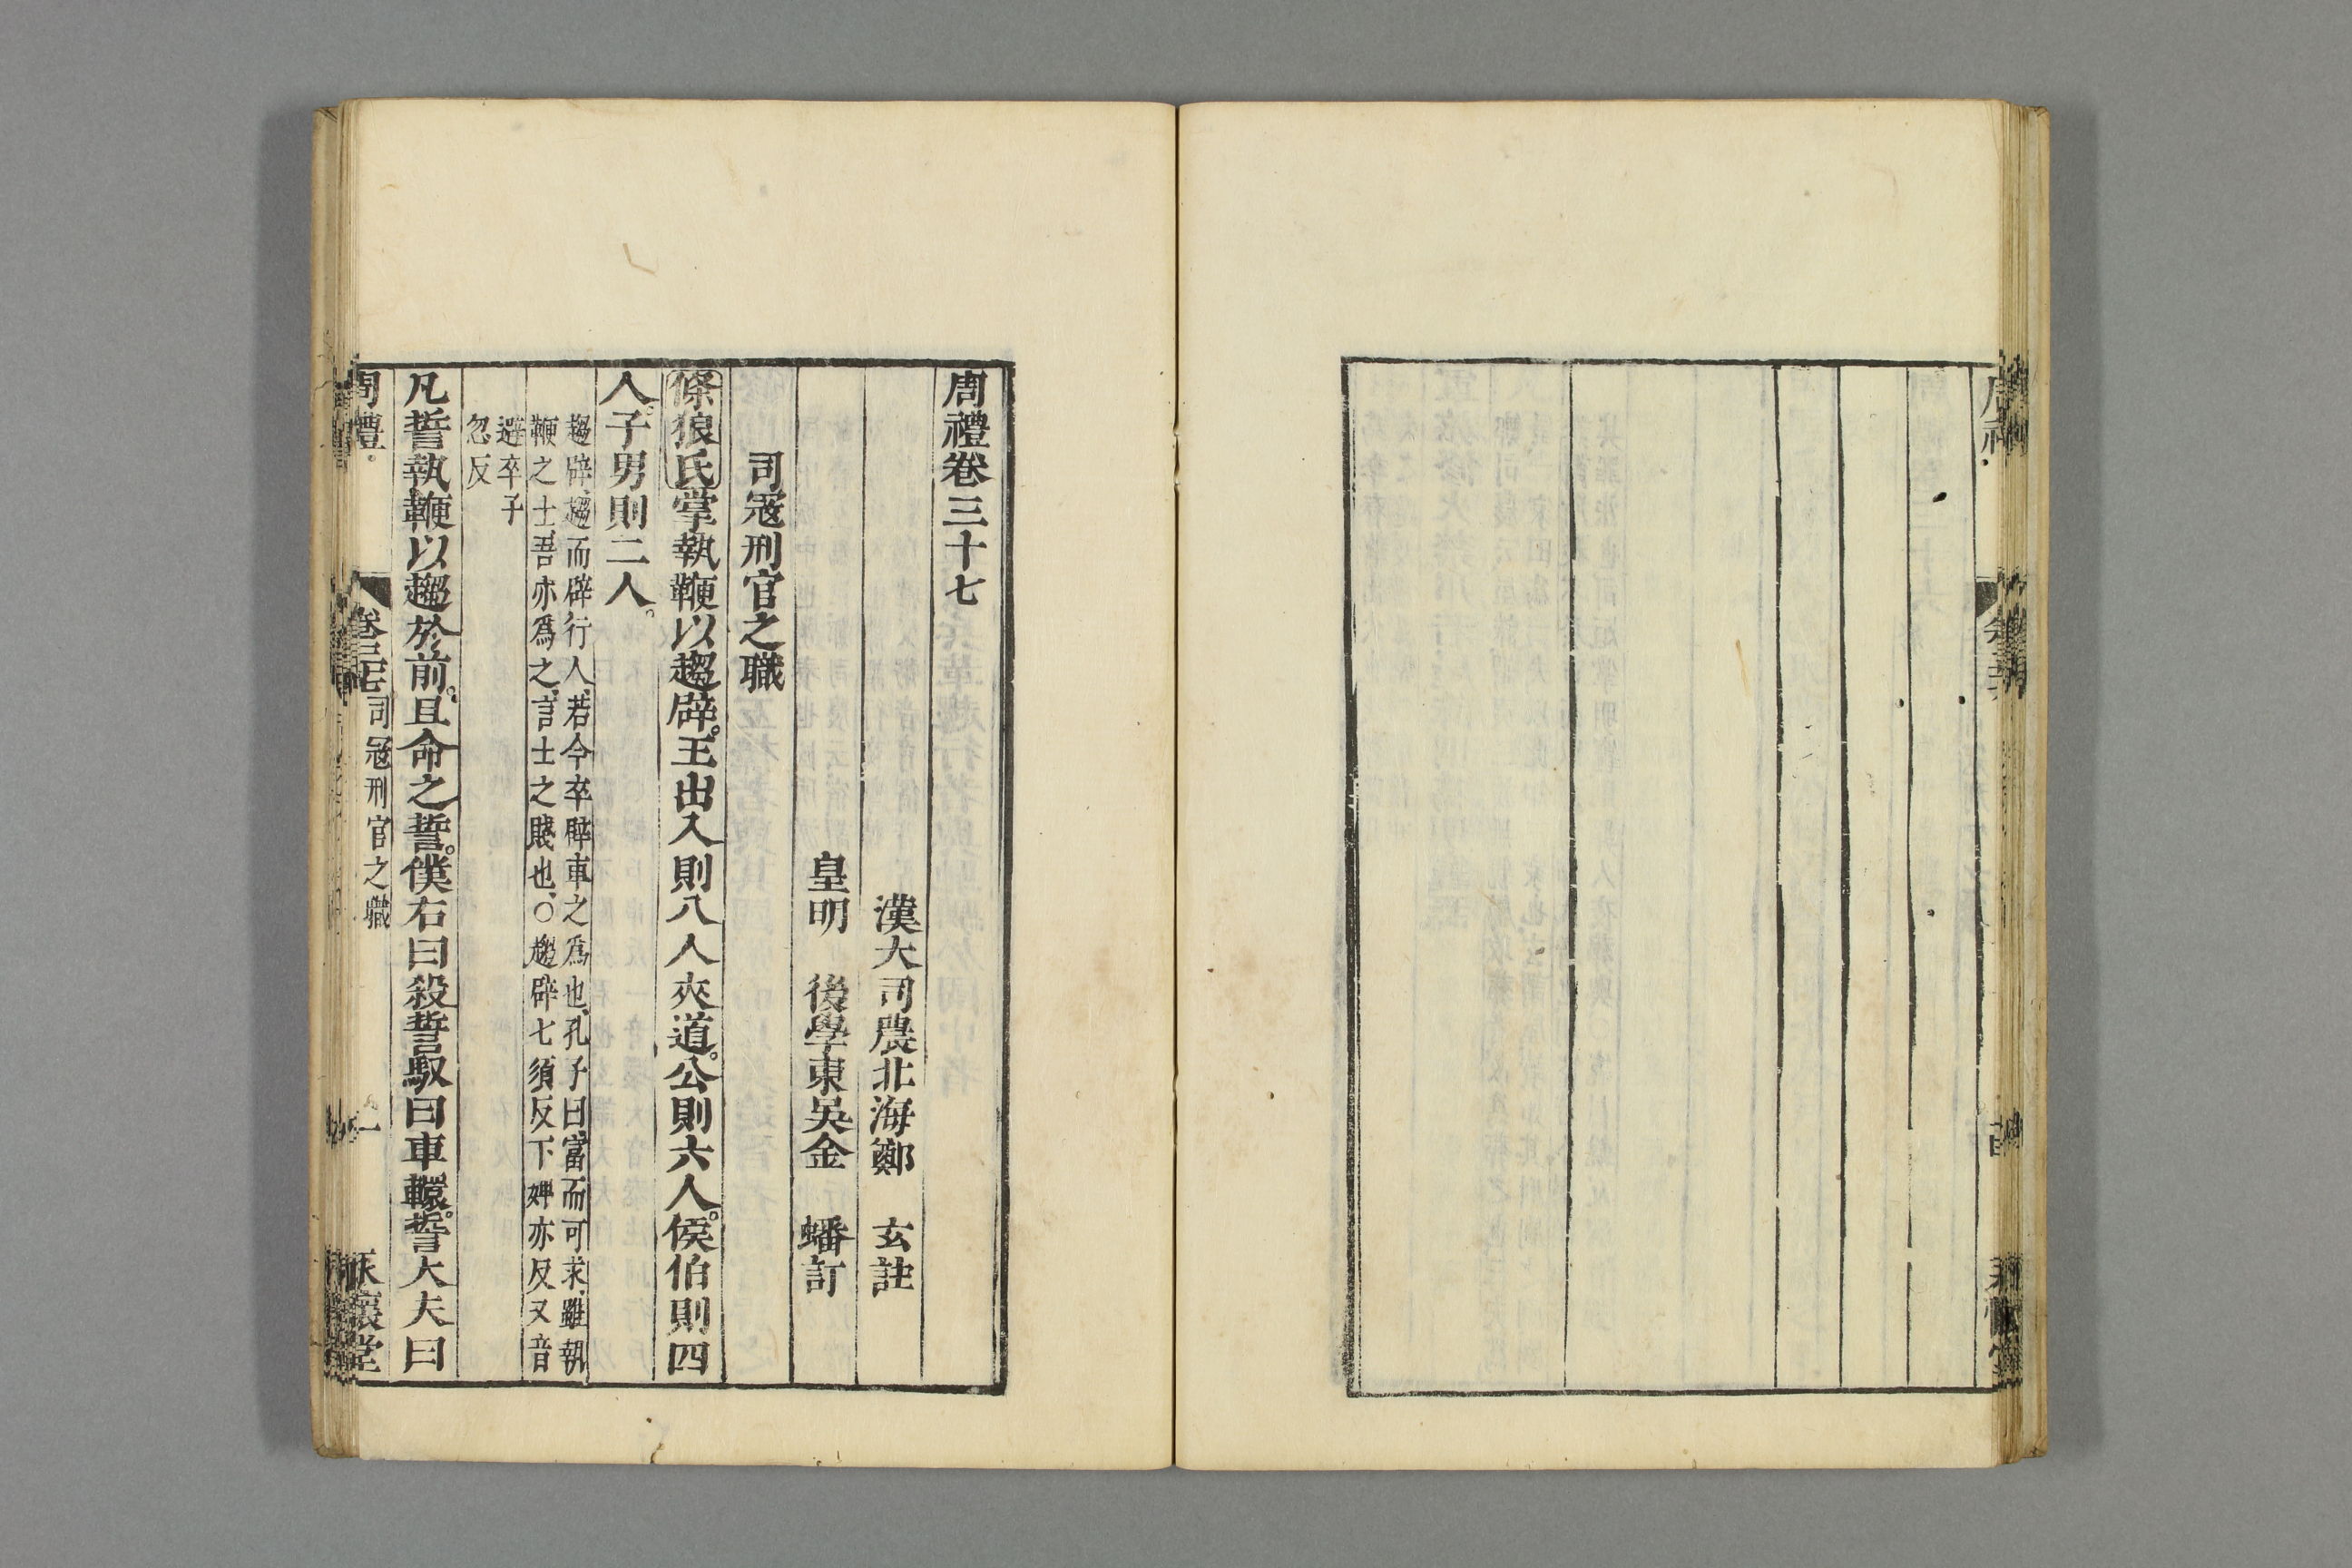 周禮卷三十七
漢大司農北海鄭　玄註
皇明　後學東吳金　蟠訂
司寇刑官之職
條狼氏掌執鞭以趨辟。王出入則八人夾道。公則六人。侯伯則四
人。子男則二人。
趨辟、趨而辟行人、若今卒辟車之爲也、孔子曰、富而可求、雖執
鞭之士、吾亦爲之、言士之賤也、○趨辟七須反下婢亦反又音
避卒子
忽反
凡誓執鞭以趨於前。且命之誓。僕右曰殺誓馭曰車轘。誓大夫曰
周禮。
卷三十七
司寇刑官之職
一
永懷堂